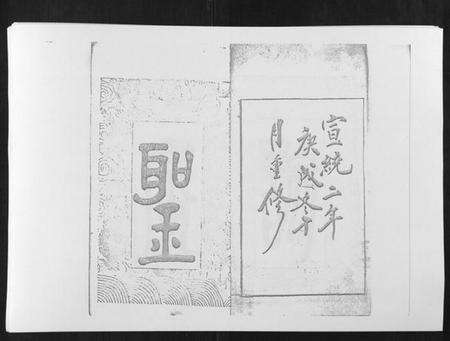 宣統二年
庚戌冬
月重修
聖